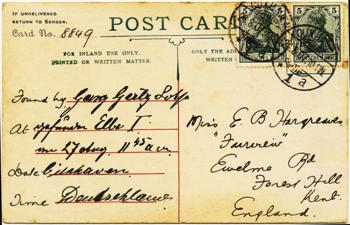 IF UNDELIVERED
RETURN TO SENDER.
Card No. 8849
POST CARD
FOR INLAND USE ONLY.
PRINTED OR WRITTEN MATTER.
ONLY THE AD
WRITTEN
5 5
1 a
Found by Georg
At Elbe I
27 Aug. 11 45
Date Cuxhaven
Time Deutschland
Miss E B Hargreaves
"Fairview"
Ewelme Rd
Forest Hill
Kent.
England.